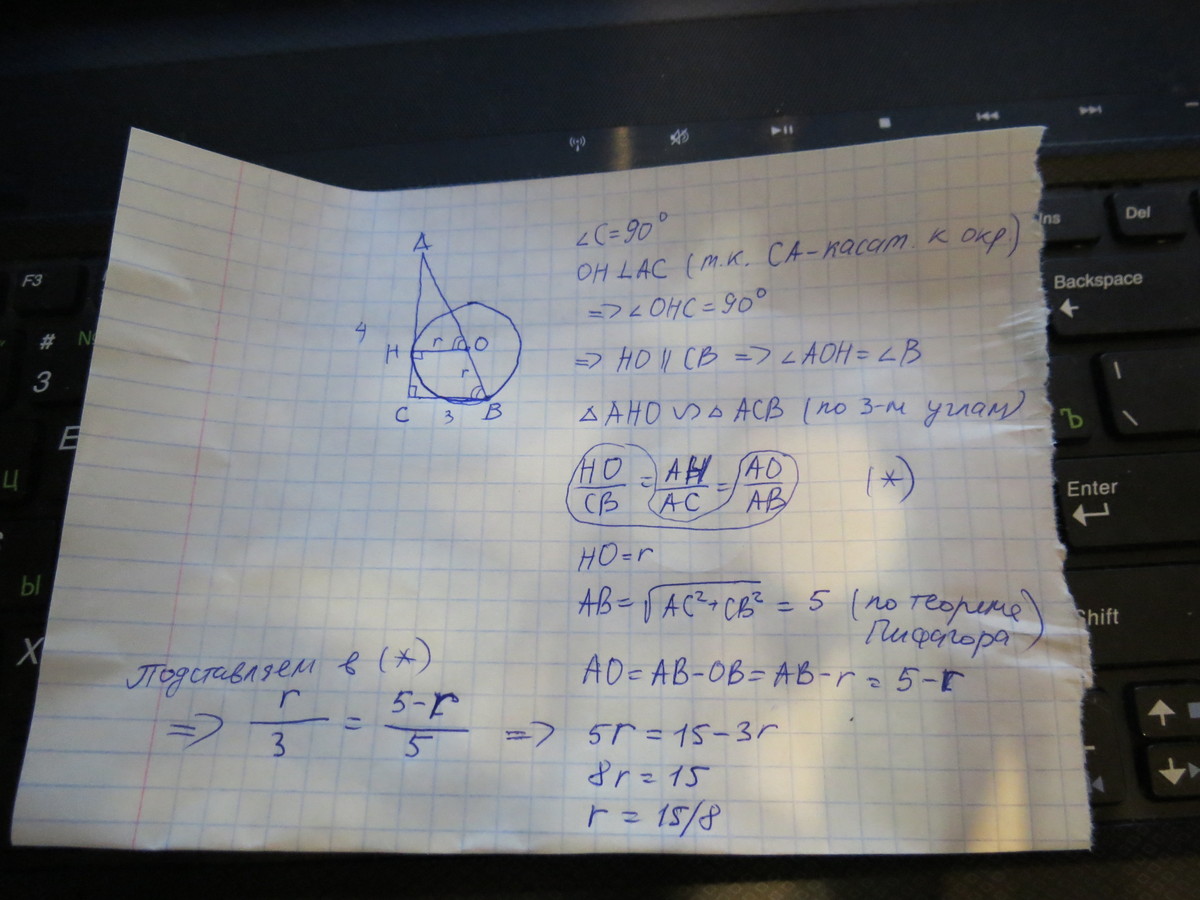 A
4
H
r
O
r
C
3
B
∠C=90°
OH∠AC (т.к. CA-касат. к окр.)
=> ∠OHC=90°
=> HO || CB => ∠AOH = ∠B
△AHO ∽ △ACB (по 3-м углам)
HO/CB = AH/AC = AO/AB (*)
HO=r
AB=√AC²+CB² = 5 (по теореме Пифагора)
AO=AB-OB=AB-r = 5-r
Подставляем в (*)
=> r/3 = 5-r/5 => 5r = 15-3r
8r = 15
r = 15/8
F3
#
3
Ins
Del
Backspace
Ъ
Enter
Shift
E
Ц
Ы
X